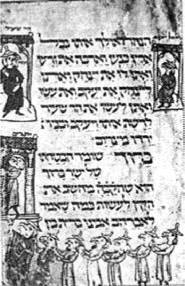 הנהר ואולך אתו בכל
ארץ כנען וארבה את
זרעו ואתן לו את יצחק ואתן
ליצחק את יעקב ואת עשו
ואתן לעשו את הר שעיר
לרשת אתו ויעקב ובניו
ירדו מצרים
ברוך שומר הבטחתו
לישראל ברוך
הוא שהקבה מחשב את
הקץ לעשות כמה שאמר
לאברהם אבינו בין